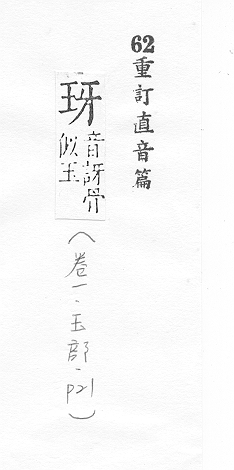 62重訂直音篇
玡
音訝骨
似玉
（卷一．玉部．P21）